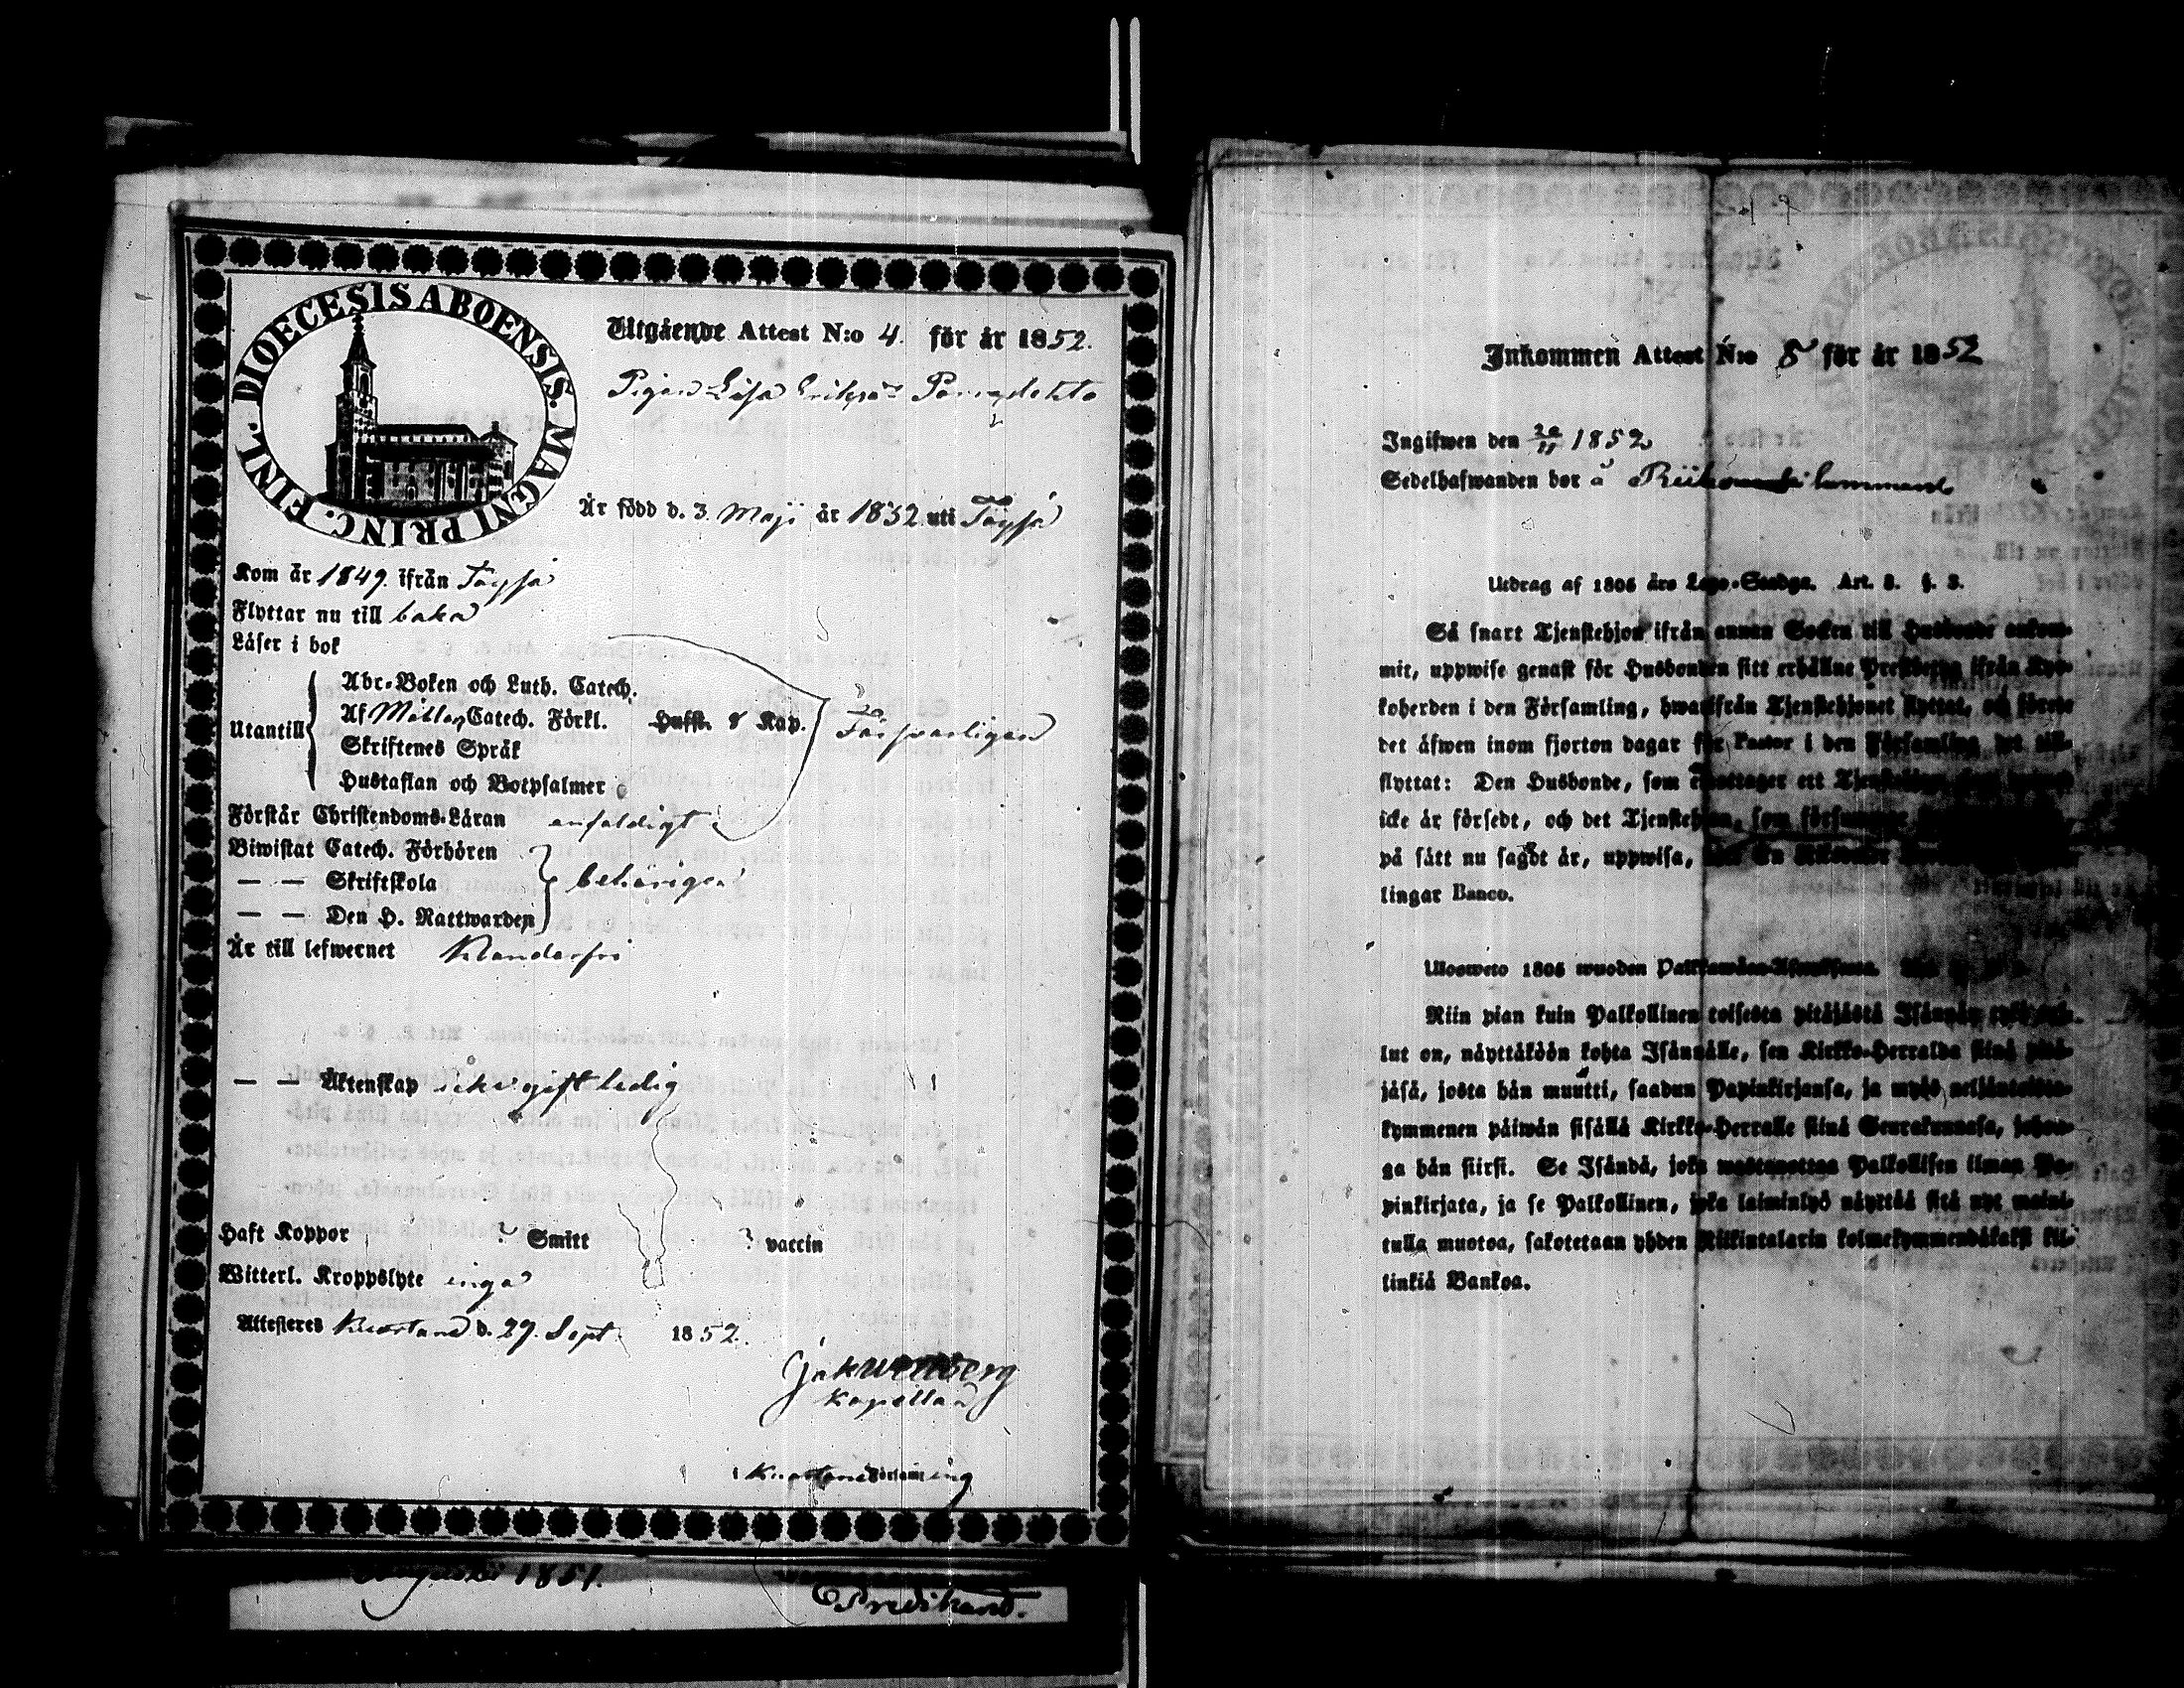 DIOECESIS ABOENSIS. MAGNI PRINC. FINL.
Utgående Attest N:o 4. för år 1852.
Pigan Lisa Eriksd:r
Är född d. 3 Maji år 1832 uti Töysä
Kom år 1849. ifrån Töysä
Flyttar nu till baka
Läser i bok
Utantill
Abc-Boken och Luth. Catech.
Af Möllers Catech. Förkl. Hufst. 8 Kap.
Skriftenes Språk
Hustaflan och Botpsalmer
Försvarligen
Förstår Christendoms-Läran enfaldigt
Biwistat Catech. Förhören
— — Skriftskola behörigen
— — Den H. Nattwarden
Är till lefwernet klanderfri
— — Äktenskap icke gift ledig
Haft Koppor ? Smitt ? vaccin
Witterl. Kroppslyte inga
Attesteres Kuortane d. 29. Sept. 1852.
Kapellan
i Kuortane Församling
Augusti 1851.
Predikant.
Inkommen Attest N:o 8 för år 1852
Ingifwen den 20/11 1852
Sedelhafwanden bor å
Utdrag af 1805 års Lego-Stadga. Art. 3. §. 3.
Så snart Tjenstehjon ifrån annan Socken till Husbonde ankom-
mit, uppwise genast för Husbonden sitt erhållne Prestbetyg ifrån Kyr-
koherden i den Församling, hwarifrån Tjenstehjonet flyttat, och förete
det äfwen inom fjorton dagar för Pastor i den Församling det till-
flyttat: Den Husbonde, som emottager ett Tjenstehjon,
icke är försedt, och det Tjenstehjon, som försummar
på sätt nu sagdt är, uppwisa,
lingar Banco.
Ulosweto 1805 wuoden
Niin pian kuin Palkollinen toisesta pitäjästä Isännän
lut on, näyttäköön kohta Isännälle, sen Kirkko-Herralda siinä pitä-
jäsä, josta hän muutti, saadun Papinkirjansa, ja myös neljäntoista-
kymmenen päiwän sisällä Kirkko-Herralle siinä Seurakunnasa, johon-
ga hän siirsi. Se Isändä, joka wastaanottaa Palkollisen ilman Pa-
pinkirjata, ja se Palkollinen, joka laiminlyö näyttää sitä nyt maini-
tulla muotoa, sakotetaan yhden Riikintalarin kolmekymmendäkaksi kil-
linkiä Bankoa.